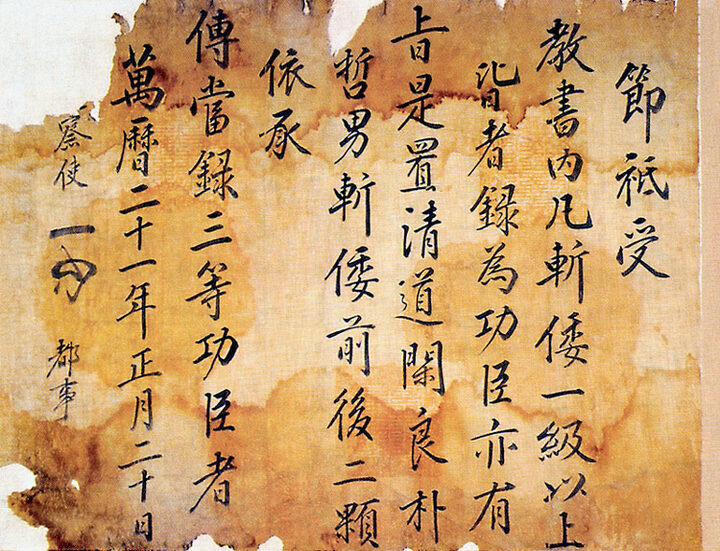 節祗受
教書内凡斬倭一級以上
皆者録為功臣亦有
旨是置清道閑良朴
哲男斬倭前後二顆
依承
傳當録三等功臣者
萬暦二十一年正月二十日
察使 都事